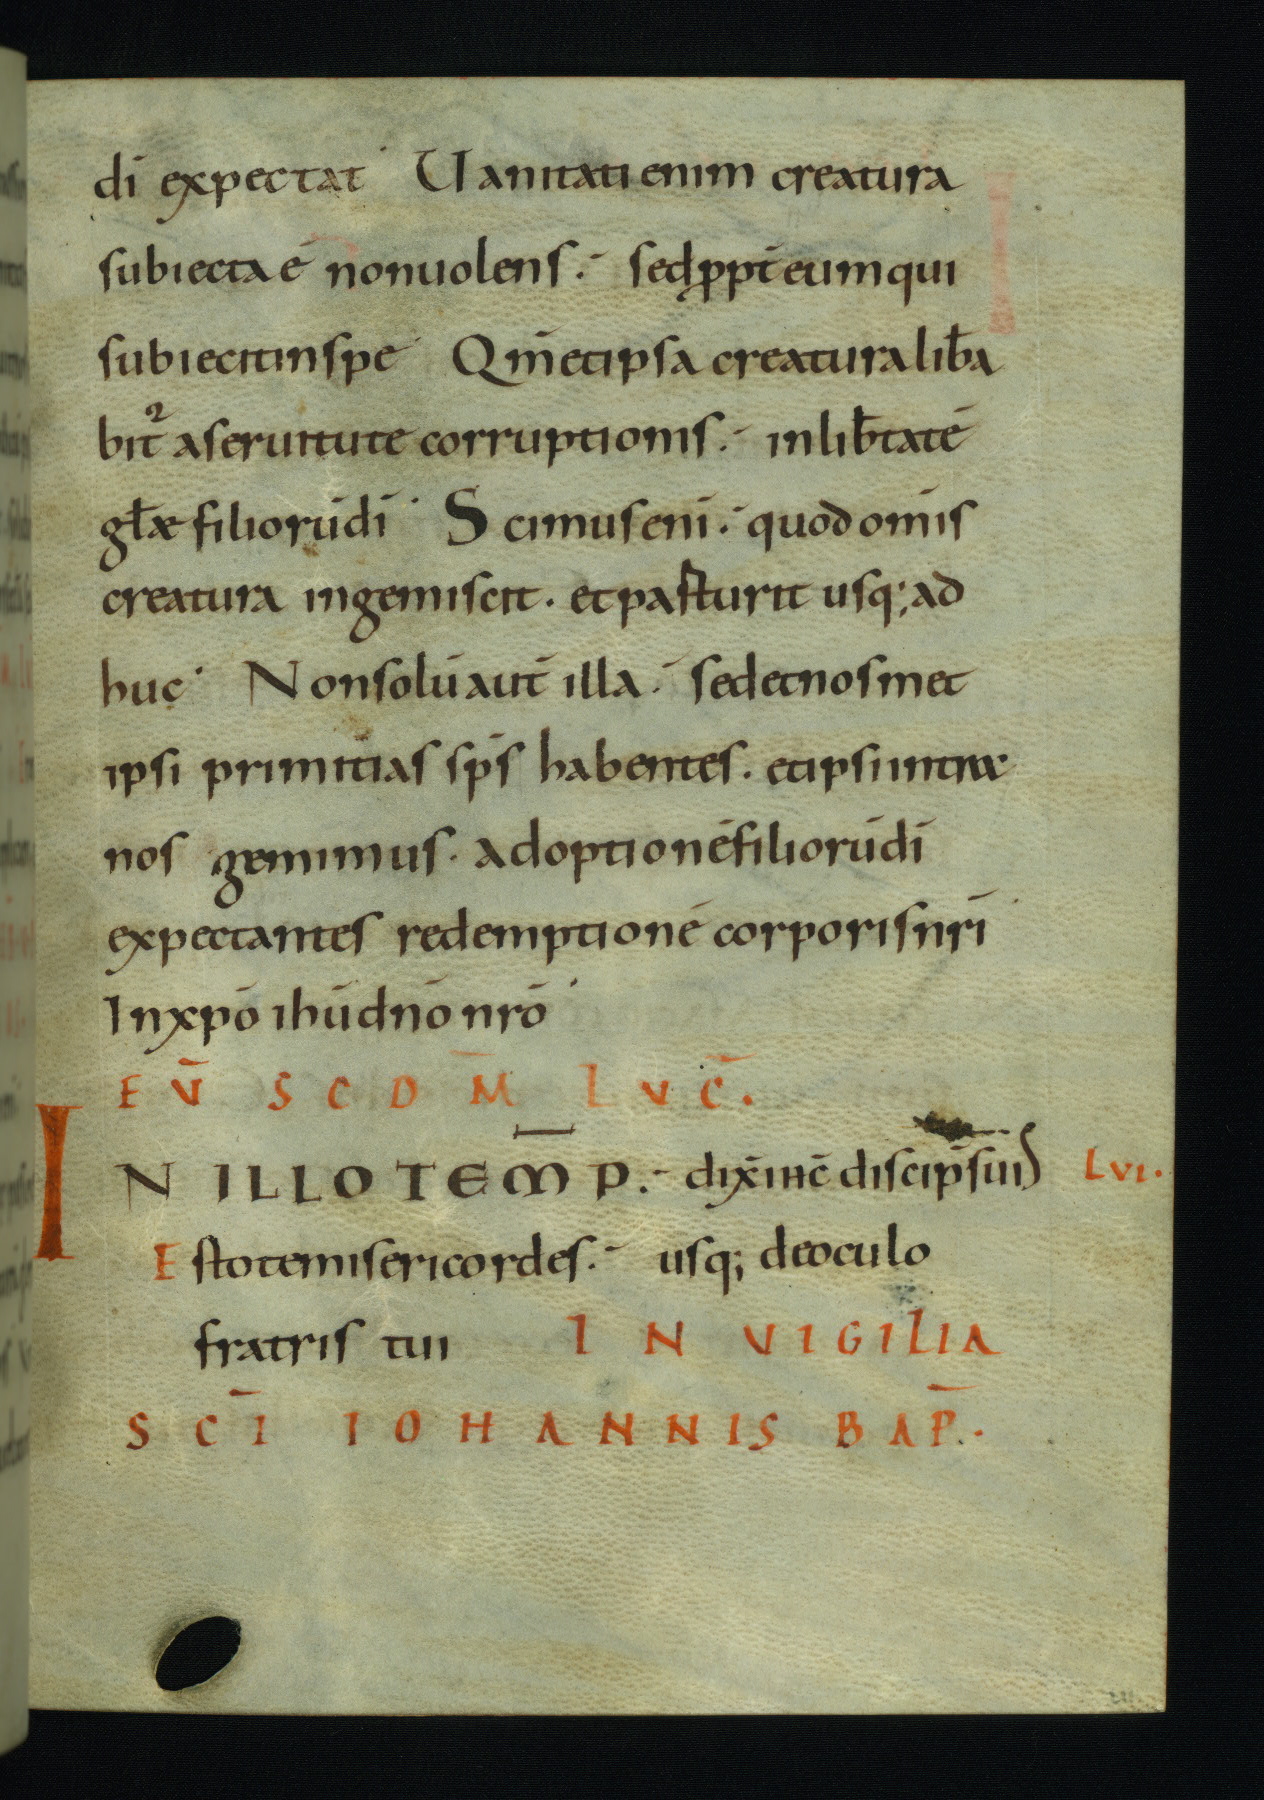 dī expectat Uanitati enim creatura
subiecta ē non uolens. sed ꝓpt̄ eum qui
subiecit in spe Qm̄ et ipsa creatura lib̄a
bit᷒ a seruitute corruptionis. in lib̄tatē
gl̄æ filiorū dī Scimus enī. quod om̄is
creatura ingemiscit. et parturit usq; ad
huc Non solū aut̄ illa. sed et nos met
ipsi primitias sp̄s habentes. et ipsi intra
nos gemimus. adoptionē filiorū dī
expectantes redemptionē corporis nr̄i
In xp̄o ih̄u dn̄o nr̄o
EV̄ SCD M̄ LVC̄.
IN ILLO TEM̄P. dix̄ ih̄c discip̄ suis LVI.
Estote misericordes. usq; de oculo
fratris tui IN VIGILIA
SC̄I IOHANNIS BAP̄.